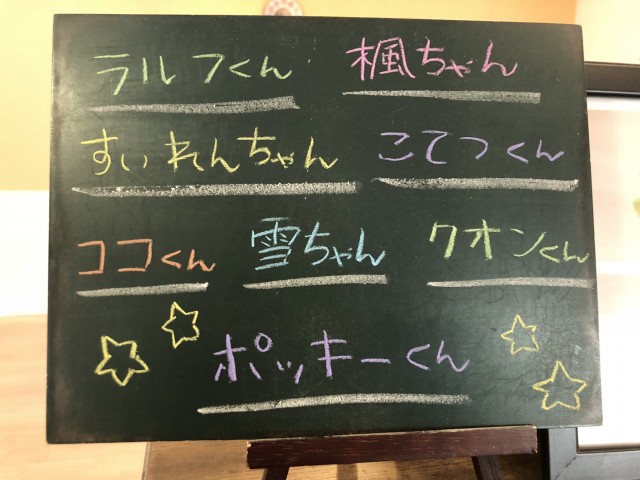 ラルフくん 楓ちゃん
すいれんちゃん こてつくん
ココくん 雪ちゃん クオンくん
ポッキーくん